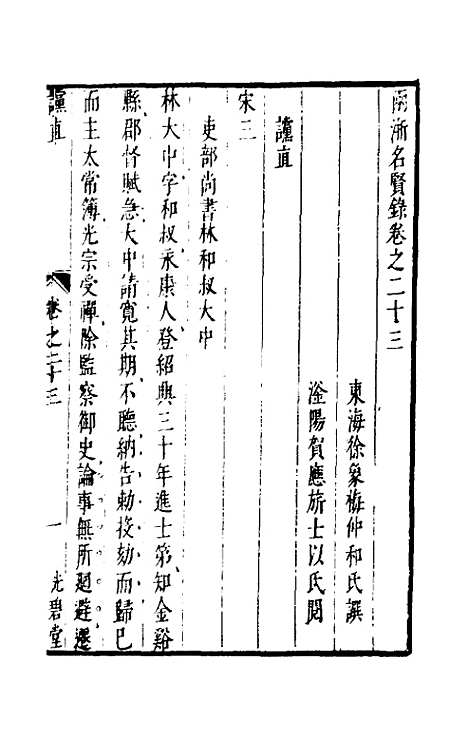 兩浙名賢錄卷之二十三
東海徐象梅仲和氏譔
瀅陽賀應旂士以氏閱
讜直
宋三
吏部尚書林和叔大中
林大中字和叔永康人登紹興三十年進士第知金谿
縣郡督賦急大中請寬其期不聽納告勅投劾而歸已
而主太常簿光宗受禪除監察御史論事無所迴避遷
讜直
卷之二十三
一
光碧堂